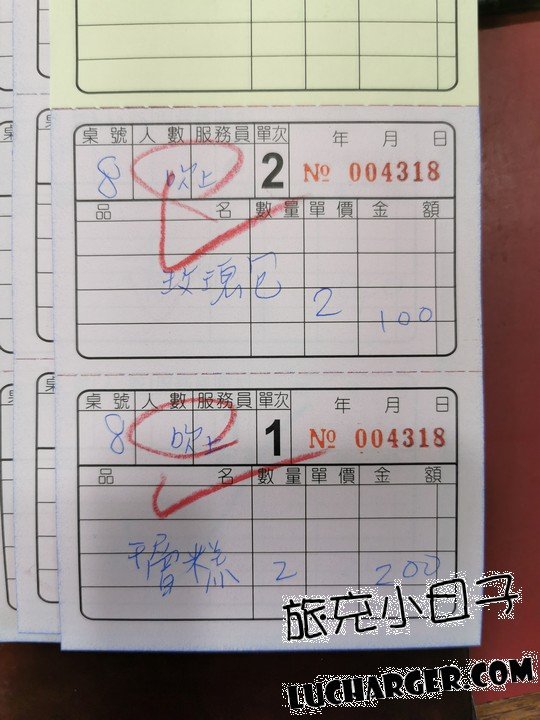 桌號 人數 服務員 單次 年 月 日
8 吃上 2 № 004318
品名 數量 單價 金額
玫瑰包 2 100
桌號 人數 服務員 單次 年 月 日
8 吃上 1 № 004318
品名 數量 單價 金額
千層糕 2 200
旅充小日子
LUCHARGER.COM